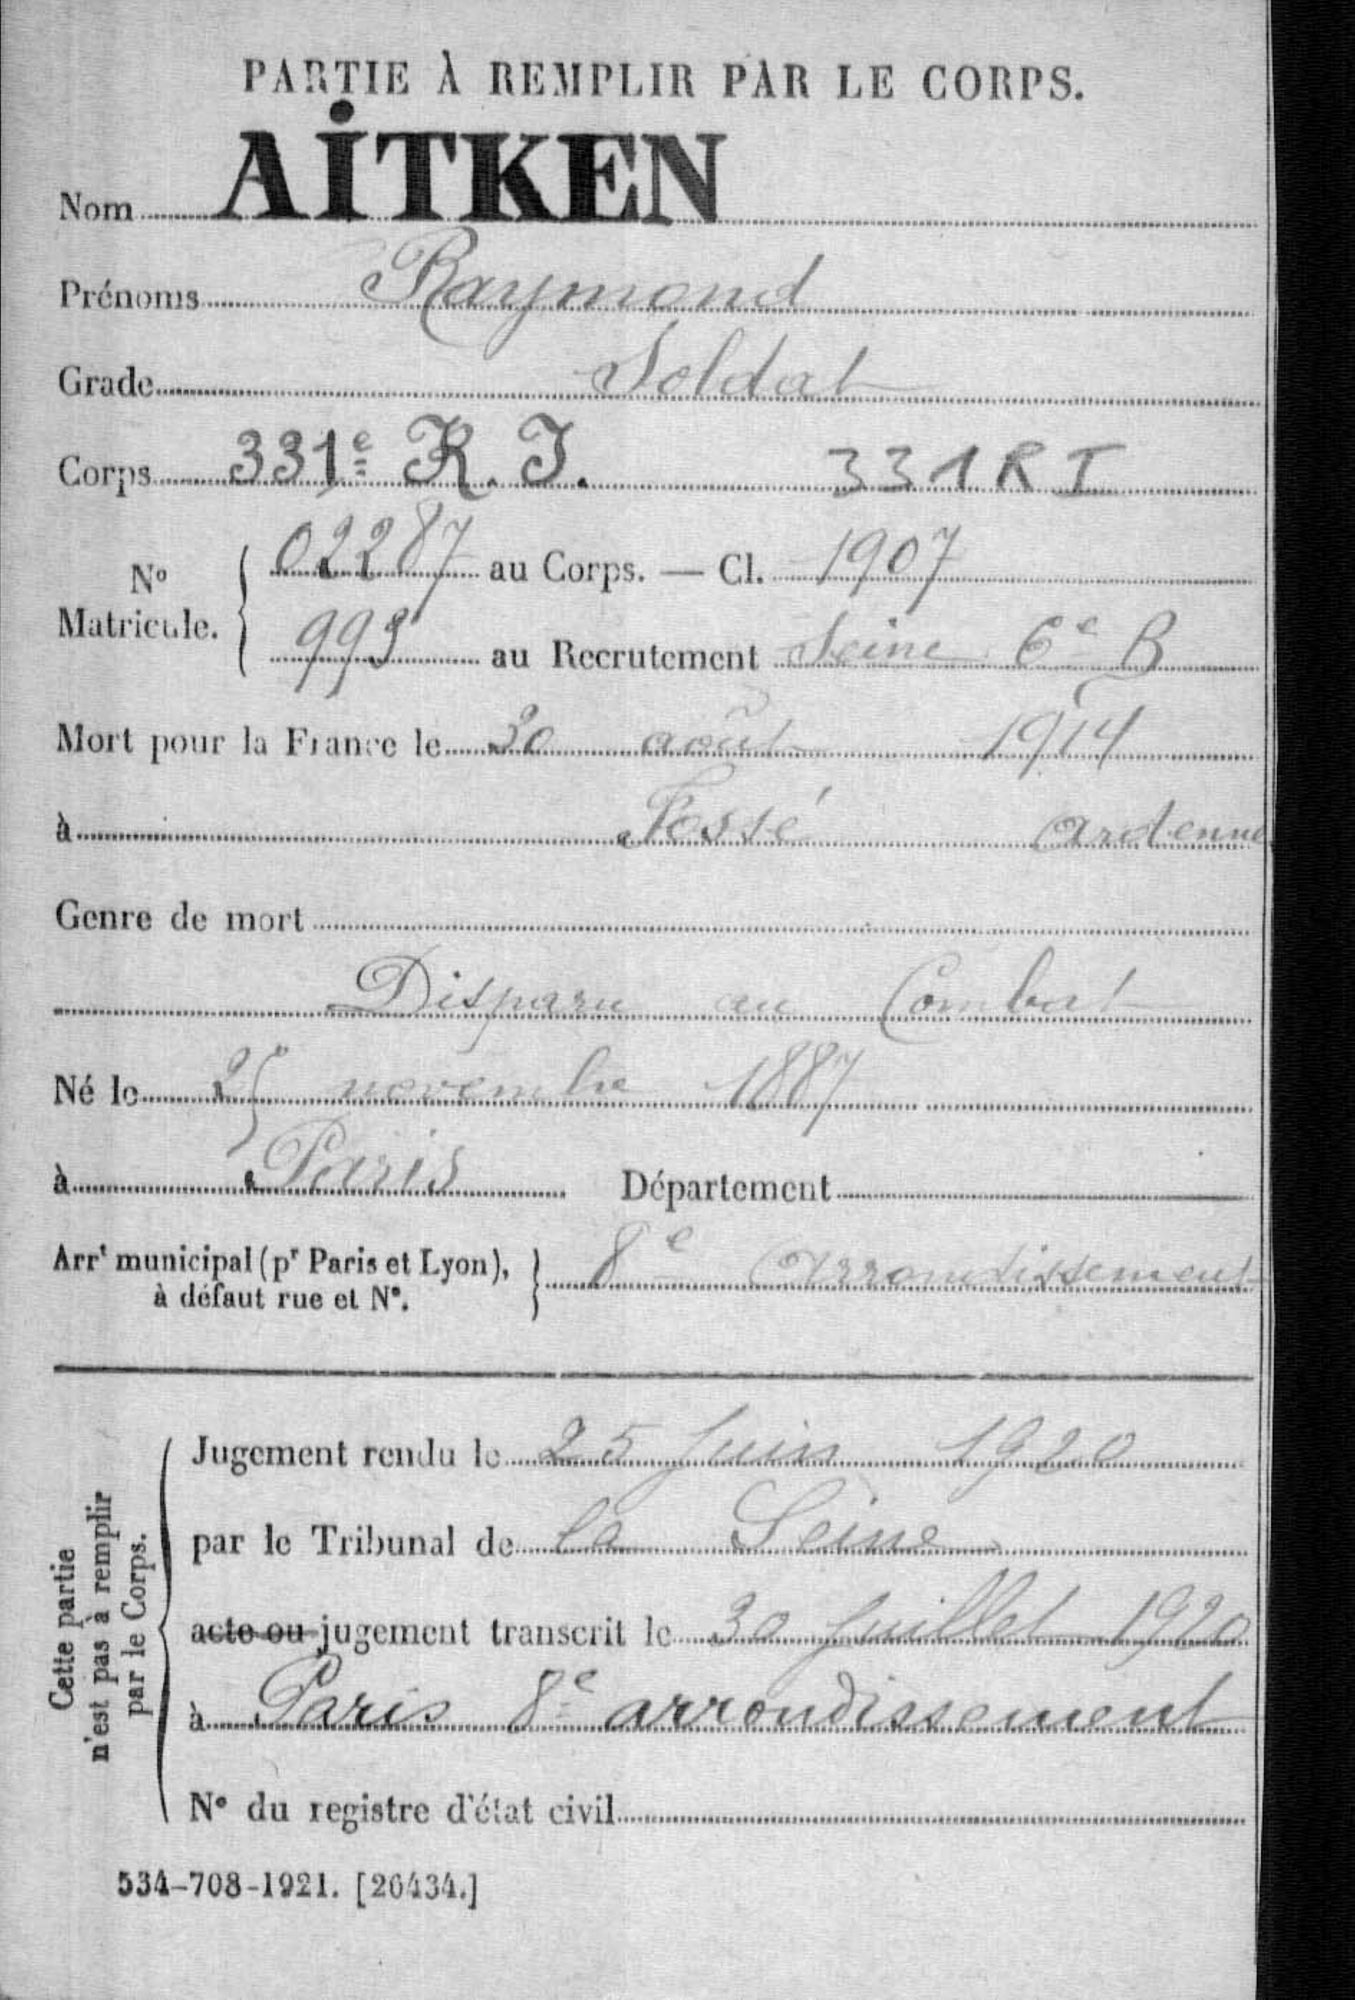 PARTIE À REMPLIR PAR LE CORPS.
Nom AITKEN
Prénoms Raymond
Grade Soldat
Corps 331e R. I. 331 R I
No Matricule. 02287 au Corps. — Cl. 1907
993 au Recrutement Seine 6e B
Mort pour la France le 30 août 1914
à Fossé Ardennes
Genre de mort
Disparu au Combat
Né le 25 novembre 1887
à Paris Département
Arrt municipal (pr Paris et Lyon), à défaut rue et No. 8e arrondissement
Cette partie n'est pas à remplir par le Corps.
Jugement rendu le 25 Juin 1920
par le Tribunal de la Seine
acte ou jugement transcrit le 30 Juillet 1920
à Paris 8e arrondissement
No du registre d'état civil
534-708-1921. [26434.]